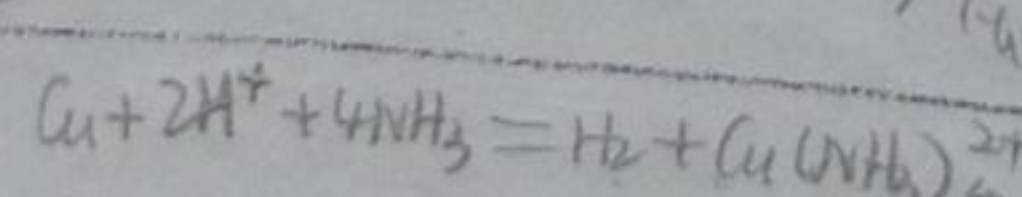 Cu + 2H⁺ + 4NH₃ = H₂ + Cu(NH₃)₄²⁺